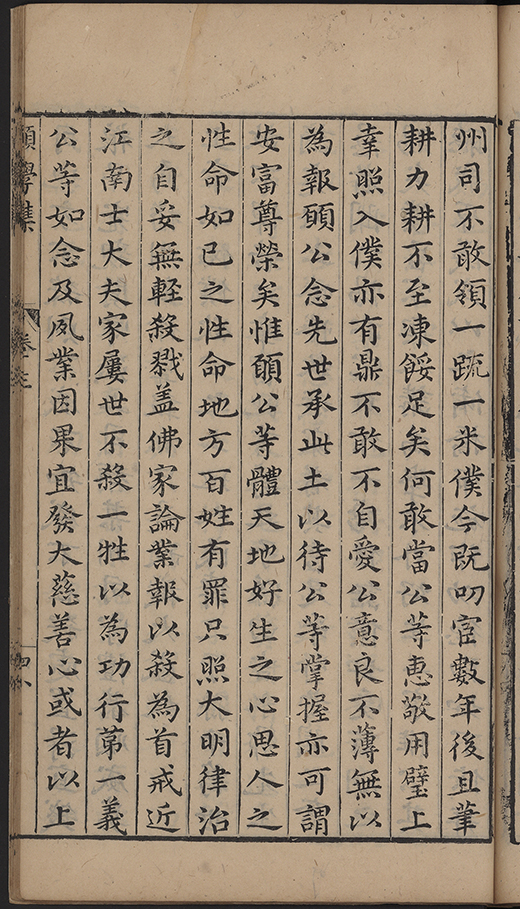 州司不敢領一蹠一米僕今既叨宦數年後且筆
耕力耕不至凍餒足矣何敢當公等惠敬用璧上
幸照入僕亦有鼎不敢不自愛公意良不薄無以
為報願公念先世承此土以待公等掌握亦可謂
安富尊榮矣惟願公等體天地好生之心思人之
性命如已之性命地方百姓有罪只照大明律治
之自妥無輕殺戮盖佛家論業報以殺為首戒近
江南士大夫家屢世不殺一牲以為功行第一義
公等如念及夙業因果宜發大慈善心或者以上
學集
卷之